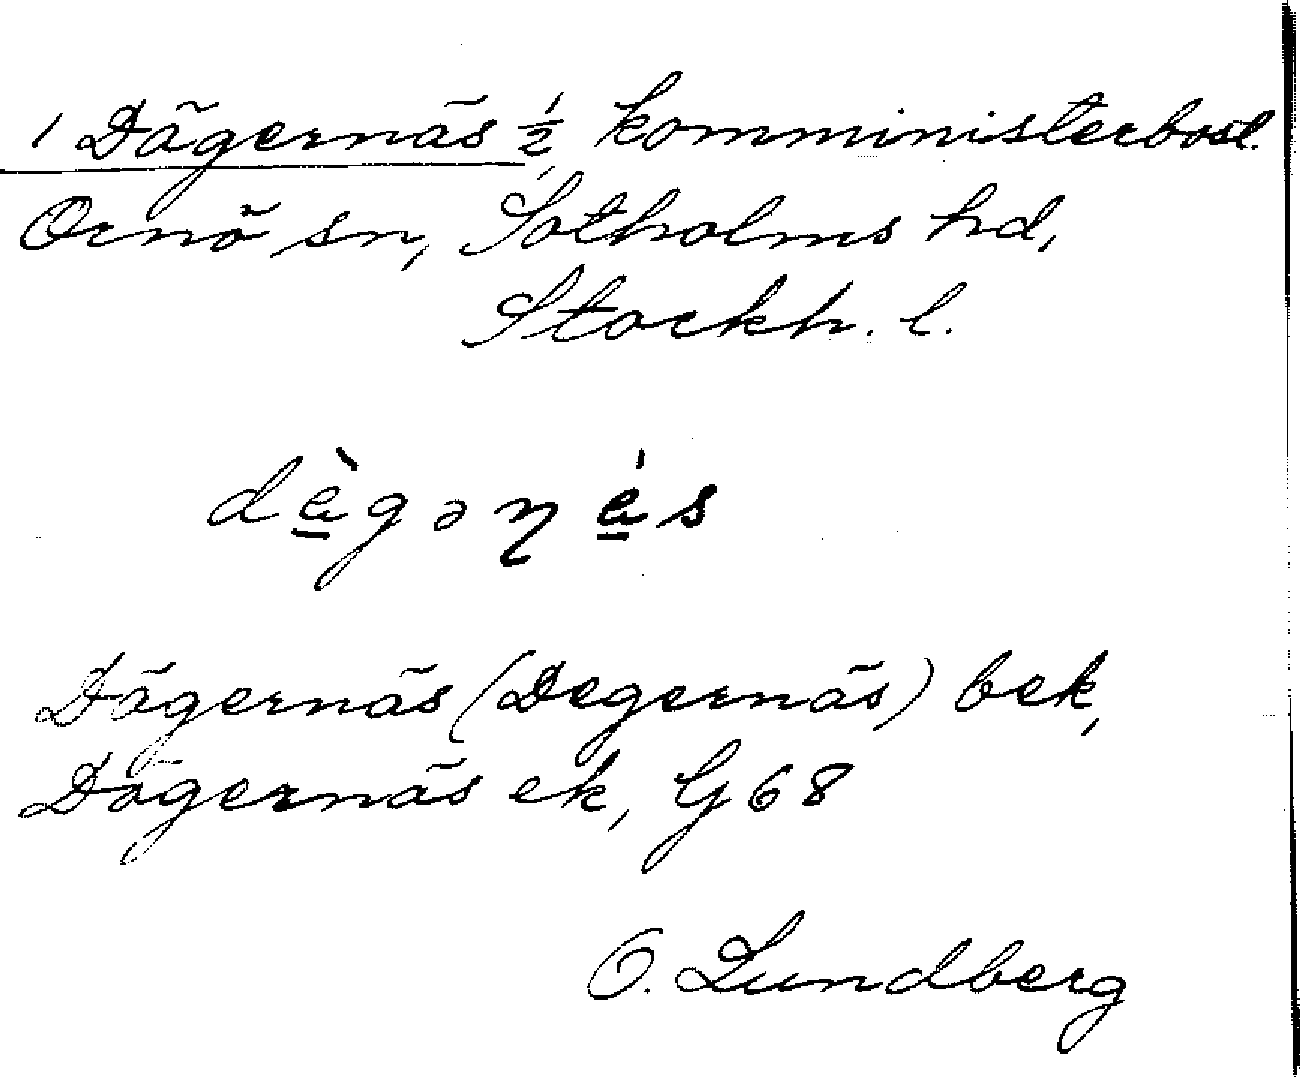 1 Dägernäs ½ komministerbost.
Ornö sn, Sotholms hd,
Stockh. l.
dàgəɳás
Dägernäs (Degernäs) bek,
Dägernäs ek, G 68
O. Lundberg